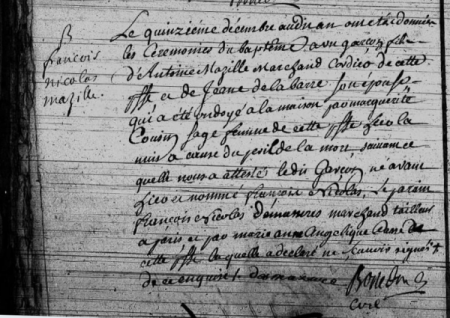 B
françois
nicolas
mazille.
Le quinzième décembre audit an ont été données
les Cérémonies du baptême a un garçon fils
D'Antoine Mazille Marchand Cordier de cette
psse et de Jeane de la barre son épouse
qui a été ondoyé a la maison par marguerite
Cousin sage femme de cette psse
a cause du peril de la mort suivant ce
quelle nous a attesté ledit Garçon né avant
hier et nommé françois Nicolas, Le parain
françois Nicolas marchand tailleur
a paris et par marie anne Angelique
cette psse laquelle a declaré ne scavoir signer
de ce enquise
Curé